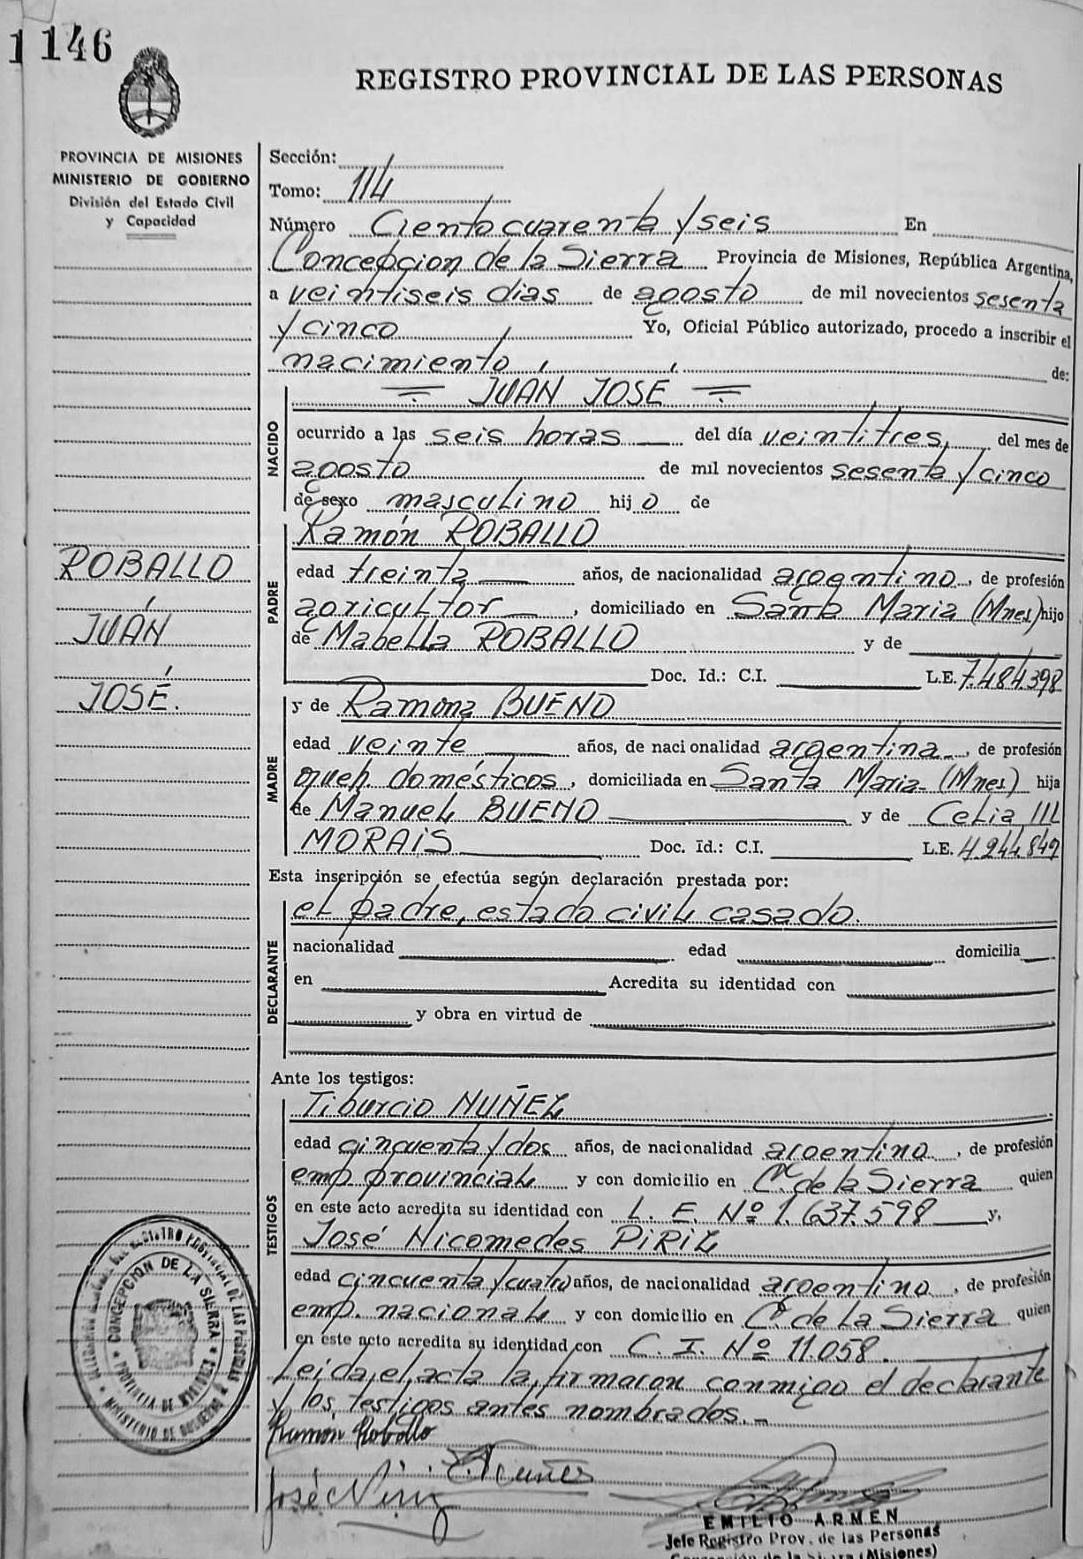 1 146
REGISTRO PROVINCIAL DE LAS PERSONAS
PROVINCIA DE MISIONES
MINISTERIO DE GOBIERNO
División del Estado Civil
y Capacidad
Sección:
Tomo: 114
Número Ciento cuarenta y seis En
Concepcion de la Sierra Provincia de Misiones, República Argentina,
a veintiseis dias de agosto de mil novecientos sesenta
y cinco Yo, Oficial Público autorizado, procedo a inscribir el
nacimiento de:
NACIDO
= JUAN JOSE =
ocurrido a las seis horas del día veintitres, del mes de
agosto de mil novecientos sesenta y cinco
de sexo masculino hijo de
PADRE
Ramón ROBALLO
edad treinta años, de nacionalidad argentino, de profesión
agricultor, domiciliado en Santa Maria (Mnes) hijo
de Mabella ROBALLO y de
Doc. Id.: C.I. L.E. 7.484.398
ROBALLO
JUAN
JOSÉ.
MADRE
y de Ramona BUENO
edad veinte años, de nacionalidad argentina, de profesión
queh. domésticos, domiciliada en Santa Maria (Mnes) hija
de Manuel BUENO y de Celia
MORAIS Doc. Id.: C.I. L.E. 4.244.849
Esta inscripción se efectúa según declaración prestada por:
DECLARANTE
el padre, estado civil casado.
nacionalidad edad domicilia
en Acredita su identidad con
y obra en virtud de
Ante los testigos:
TESTIGOS
Tiburcio NUÑEZ
edad cincuenta y dos años, de nacionalidad argentino, de profesión
emp provincial y con domicilio en C. de la Sierra quien
en este acto acredita su identidad con L. E. Nº 1.637.598 y,
José Nicomedes PIRIZ
edad cincuenta y cuatro años, de nacionalidad argentino, de profesión
emp. nacional y con domicilio en C. de La Sierra quien
en este acto acredita su identidad con C. I. Nº 11.058.
Leida el acta la firmaron conmigo el declarante
y los testigos antes nombrados.-
Ramón Roballo
José Piriz
Nuñez
CONCEPCION DE LA SIERRA
PROVINCIA DE MISIONES
MINISTERIO DE GOBIERNO
EMILIO ARMEN
Jefe Registro Prov. de las Personas
Concepción de la Sierra (Misiones)